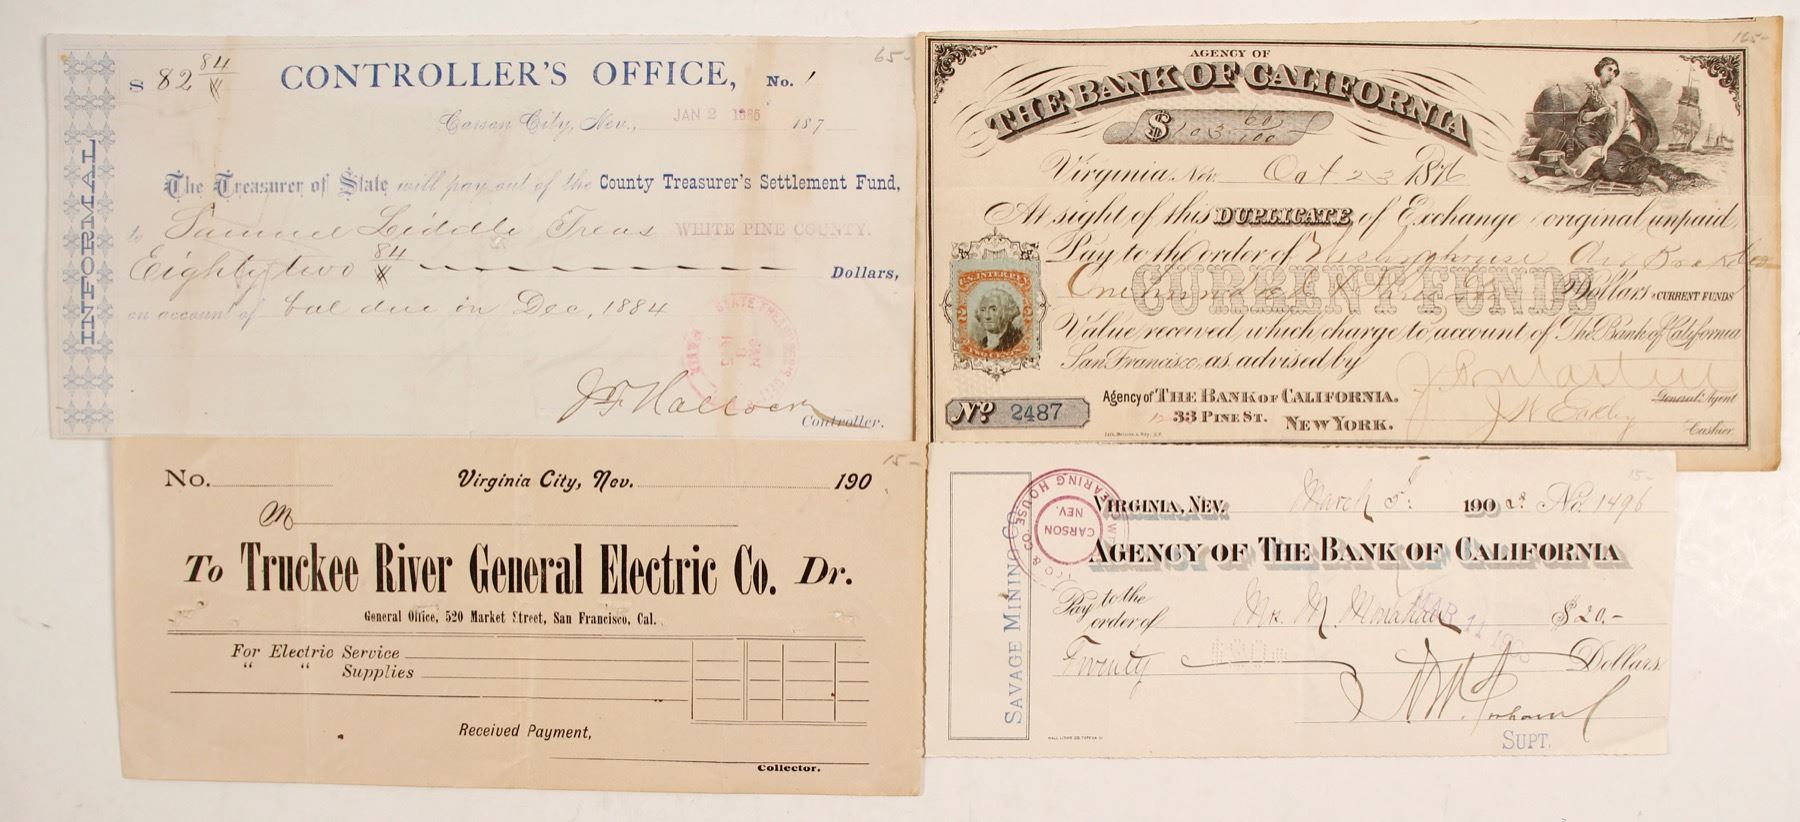 65-
$ 82 84/xx CONTROLLER'S OFFICE, No. 1
Carson City, Nev., JAN 2 1885 187
INFORMAL
The Treasurer of State will pay out of the County Treasurer's Settlement Fund,
to Samuel Liddle Treas WHITE PINE COUNTY.
Eighty two 84/xx Dollars,
on account of bal due in Dec, 1884
STATE TREASURER'S OFFICE
JAN
J F Hallock
Controller.
165-
AGENCY OF
THE BANK OF CALIFORNIA
$ 103 60/100
Virginia, Nev. Oct 23 1876
At sight of this DUPLICATE of Exchange (original unpaid)
Pay to the order of Westinghouse Air Brake Co
CURRENT FUNDS
One hundred & Three Dollars CURRENT FUNDS
Value received, which charge to account of The Bank of California
San Francisco, as advised by
U.S. INTER. REV.
Agency of THE BANK OF CALIFORNIA.
33 PINE ST. NEW YORK.
General Agent
Cashier
No 2487
15-
No. Virginia City, Nev. 190
M
To Truckee River General Electric Co. Dr.
General Office, 520 Market Street, San Francisco, Cal.
For Electric Service
" " Supplies
Received Payment,
Collector.
15-
VIRGINIA, NEV. March 5" 1908. No. 1496
CLEARING HOUSE
CARSON
NEV.
AGENCY OF THE BANK OF CALIFORNIA
SAVAGE MINING CO.
Pay to the order of Mr. M. Monahan $20.-
MAR 11 1908
Twenty Dollars
$20
SUPT.